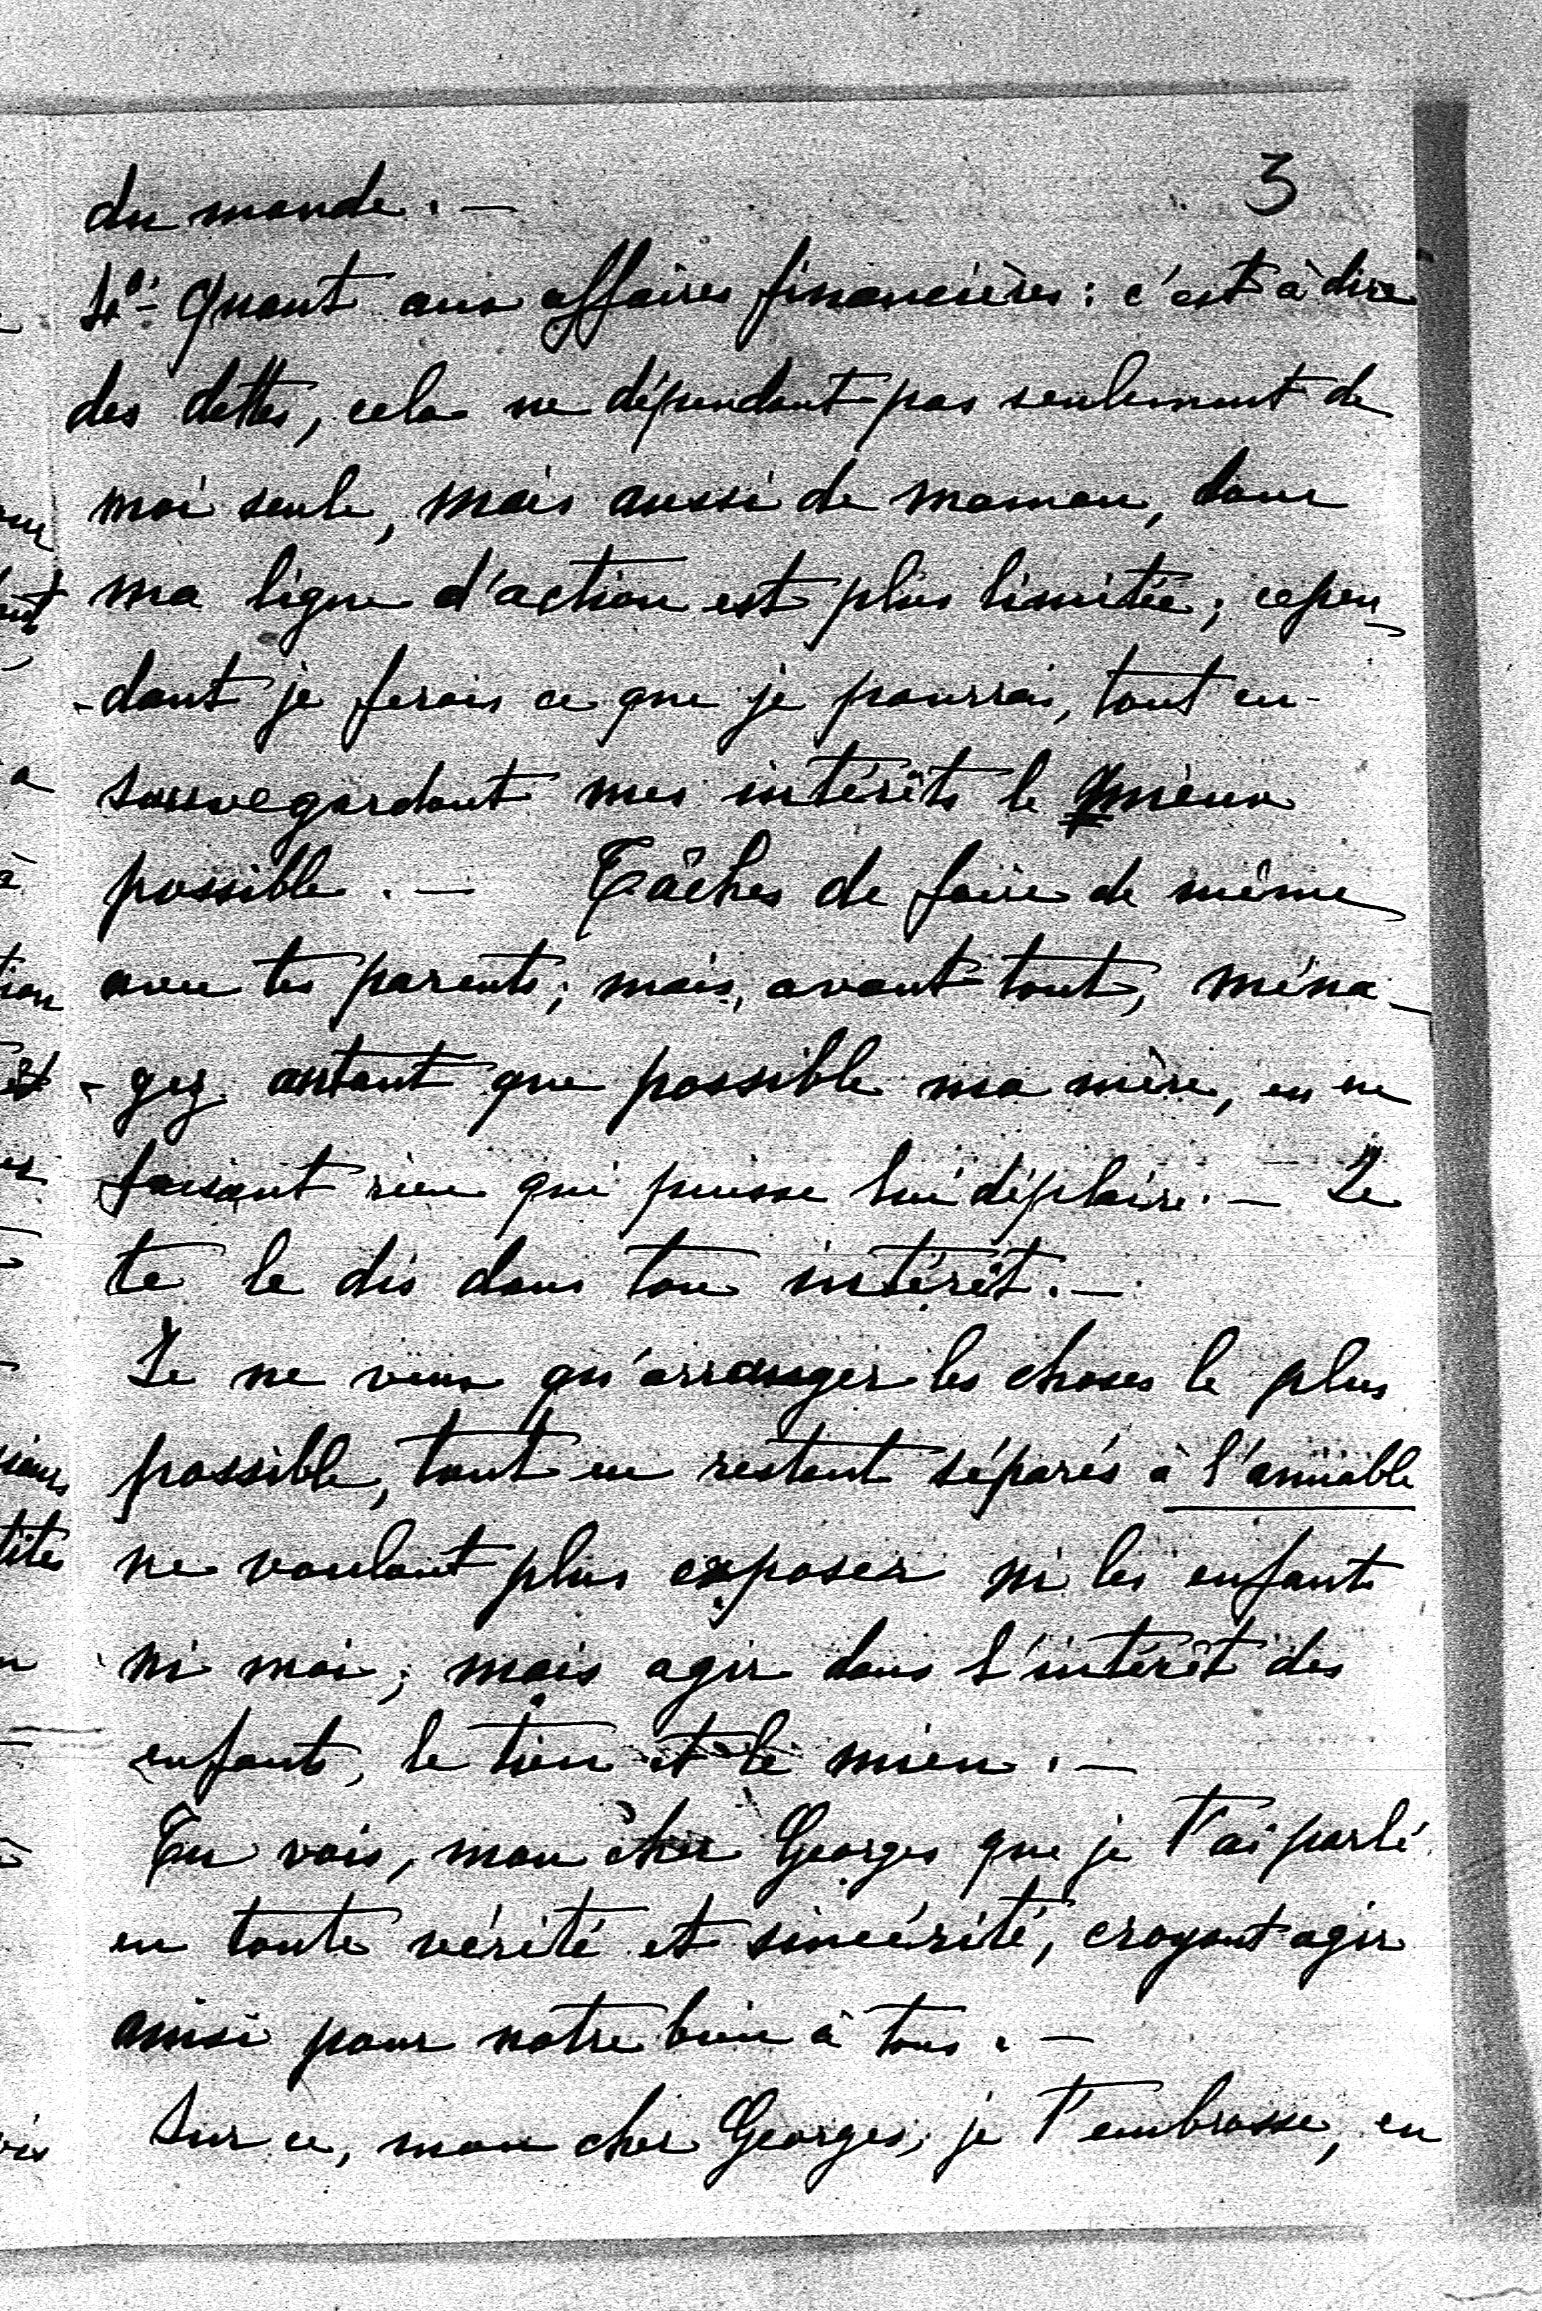 3
du monde. —
4°- Quant aux affaires financières : c'est à dire
des dettes, cela ne dépendant pas seulement de
moi seule, mais aussi de maman, donc
ma ligne d'action est plus limitée ; cepen-
-dant je ferais ce que je pourrai, tout en
sauvegardant mes intérêts le mieux
possible. — Tâches de faire de même
avec tes parents ; mais, avant tout, ména-
-gez autant que possible ma mère, en ne
faisant rien qui puisse lui déplaire. — Je
te le dis dans ton intérêt. —
Je ne veux qu'arranger les choses le plus
possible, tout en restant séparés à l'amiable
ne voulant plus exposer ni les enfants
ni moi ; mais agir dans l'intérêt des
enfants, le tien et le mien. —
Tu vois, mon cher Georges que je t'ai parlé
en toute vérité et sincérité, croyant agir
ainsi pour notre bien à tous. —
Sur ce, mon cher Georges, je t'embrasse, en